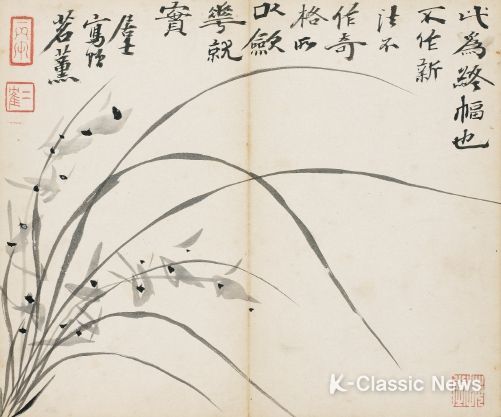 此為終幅也
不作新
法不
作奇
格所
以歛
華就
實
居士
寫贈
茗薰
K-Classic News